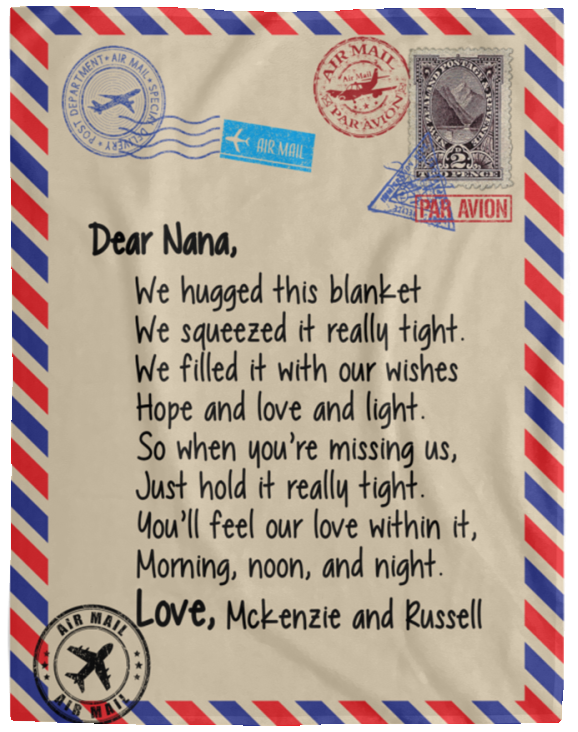 POST DEPARTMENT • AIR MAIL • SPECIAL DELIVERY •
AIR MAIL
AIR MAIL
Air Mail
PAR AVION
2
TWO PENCE
PAR AVION
Dear Nana,
We hugged this blanket
We squeezed it really tight.
We filled it with our wishes
Hope and love and light.
So when you're missing us,
Just hold it really tight.
You'll feel our love within it,
Morning, noon, and night.
Love, Mckenzie and Russell
AIR MAIL
AIR MAIL